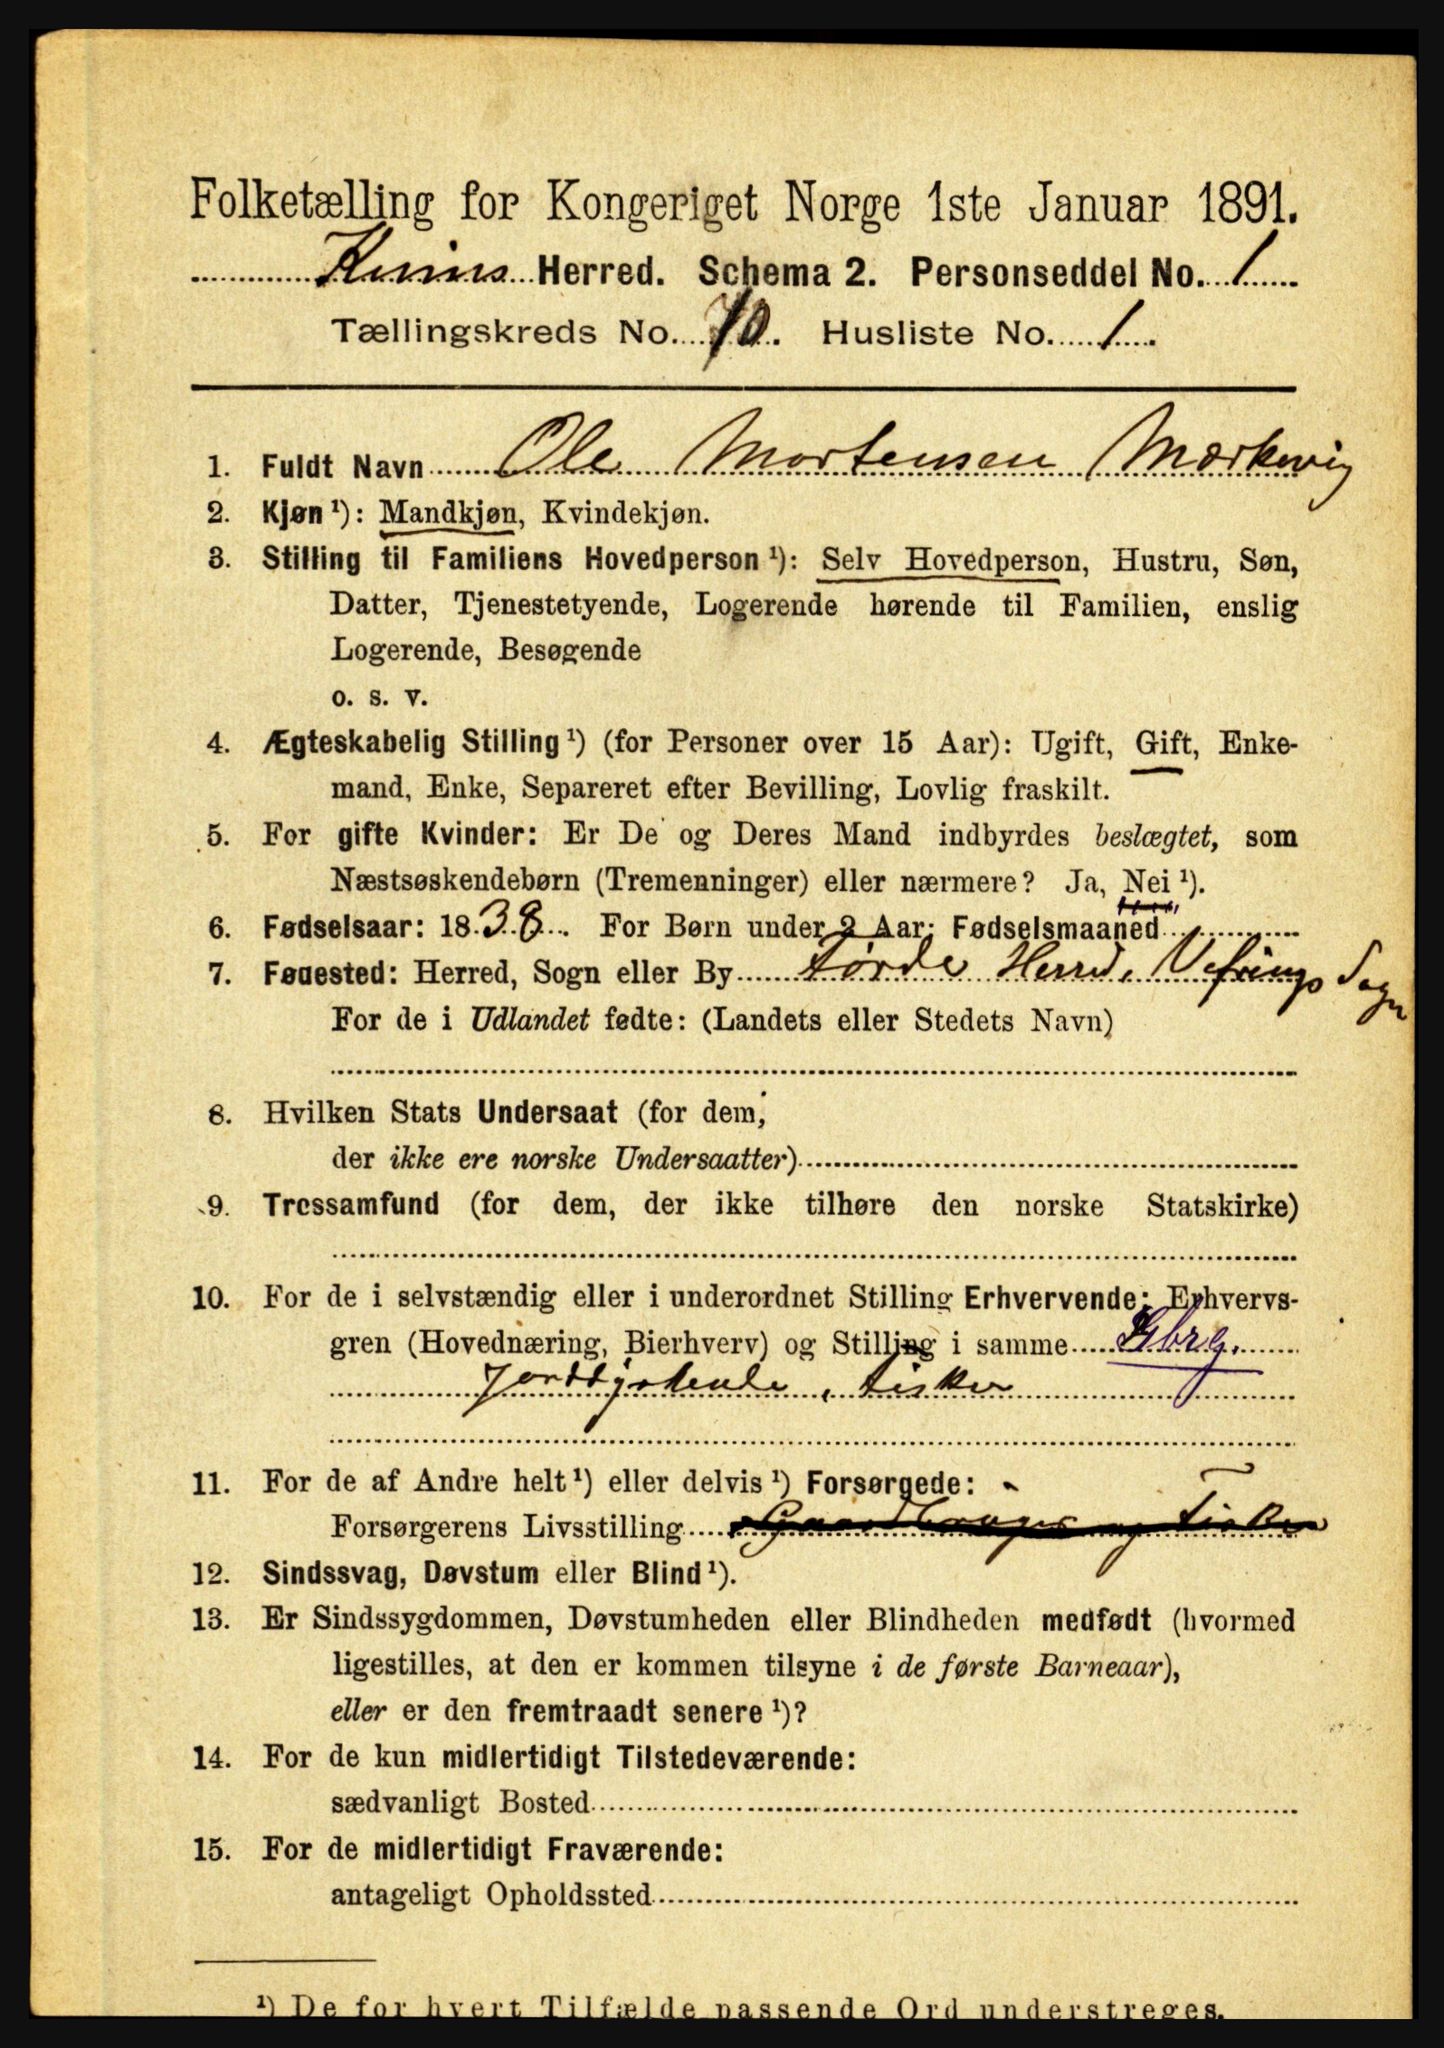 Folketælling for Kongeriget Norge 1ste Januar 1891.
Kinns Herred. Schema 2. Personseddel No. 1
Tællingskreds No. 10. Husliste No. 1.
1. Fuldt Navn Ole Mortensen Mærkevig
2. Kjøn ¹): Mandkjøn, Kvindekjøn.
3. Stilling til Familiens Hovedperson ¹): Selv Hovedperson, Hustru, Søn,
Datter, Tjenestetyende, Logerende hørende til Familien, enslig
Logerende, Besøgende
o. s. v.
4. Ægteskabelig Stilling ¹) (for Personer over 15 Aar): Ugift, Gift, Enke-
mand, Enke, Separeret efter Bevilling, Lovlig fraskilt.
5. For gifte Kvinder: Er De og Deres Mand indbyrdes beslægtet, som
Næstsøskendebørn (Tremenninger) eller nærmere? Ja, Nei ¹).
6. Fødselsaar: 1838. For Børn under 2 Aar: Fødselsmaaned
7. Fødested: Herred, Sogn eller By Førde Herred, Vefrings Sogn
For de i Udlandet fødte: (Landets eller Stedets Navn)
8. Hvilken Stats Undersaat (for dem,
der ikke ere norske Undersaatter)
9. Trossamfund (for dem, der ikke tilhøre den norske Statskirke)
10. For de i selvstændig eller i underordnet Stilling Erhvervende: Erhvervs-
gren (Hovednæring, Bierhverv) og Stilling i samme Gbrg.
Jorddyrkende, Fisker
11. For de af Andre helt ¹) eller delvis ¹) Forsørgede:
Forsørgerens Livsstilling Gaardbruger og Fisker
12. Sindssvag, Døvstum eller Blind ¹).
13. Er Sindssygdommen, Døvstumheden eller Blindheden medfødt (hvormed
ligestilles, at den er kommen tilsyne i de første Barneaar),
eller er den fremtraadt senere ¹)?
14. For de kun midlertidigt Tilstedeværende:
sædvanligt Bosted
15. For de midlertidigt Fraværende:
antageligt Opholdssted
¹) De for hvert Tilfælde passende Ord understreges.